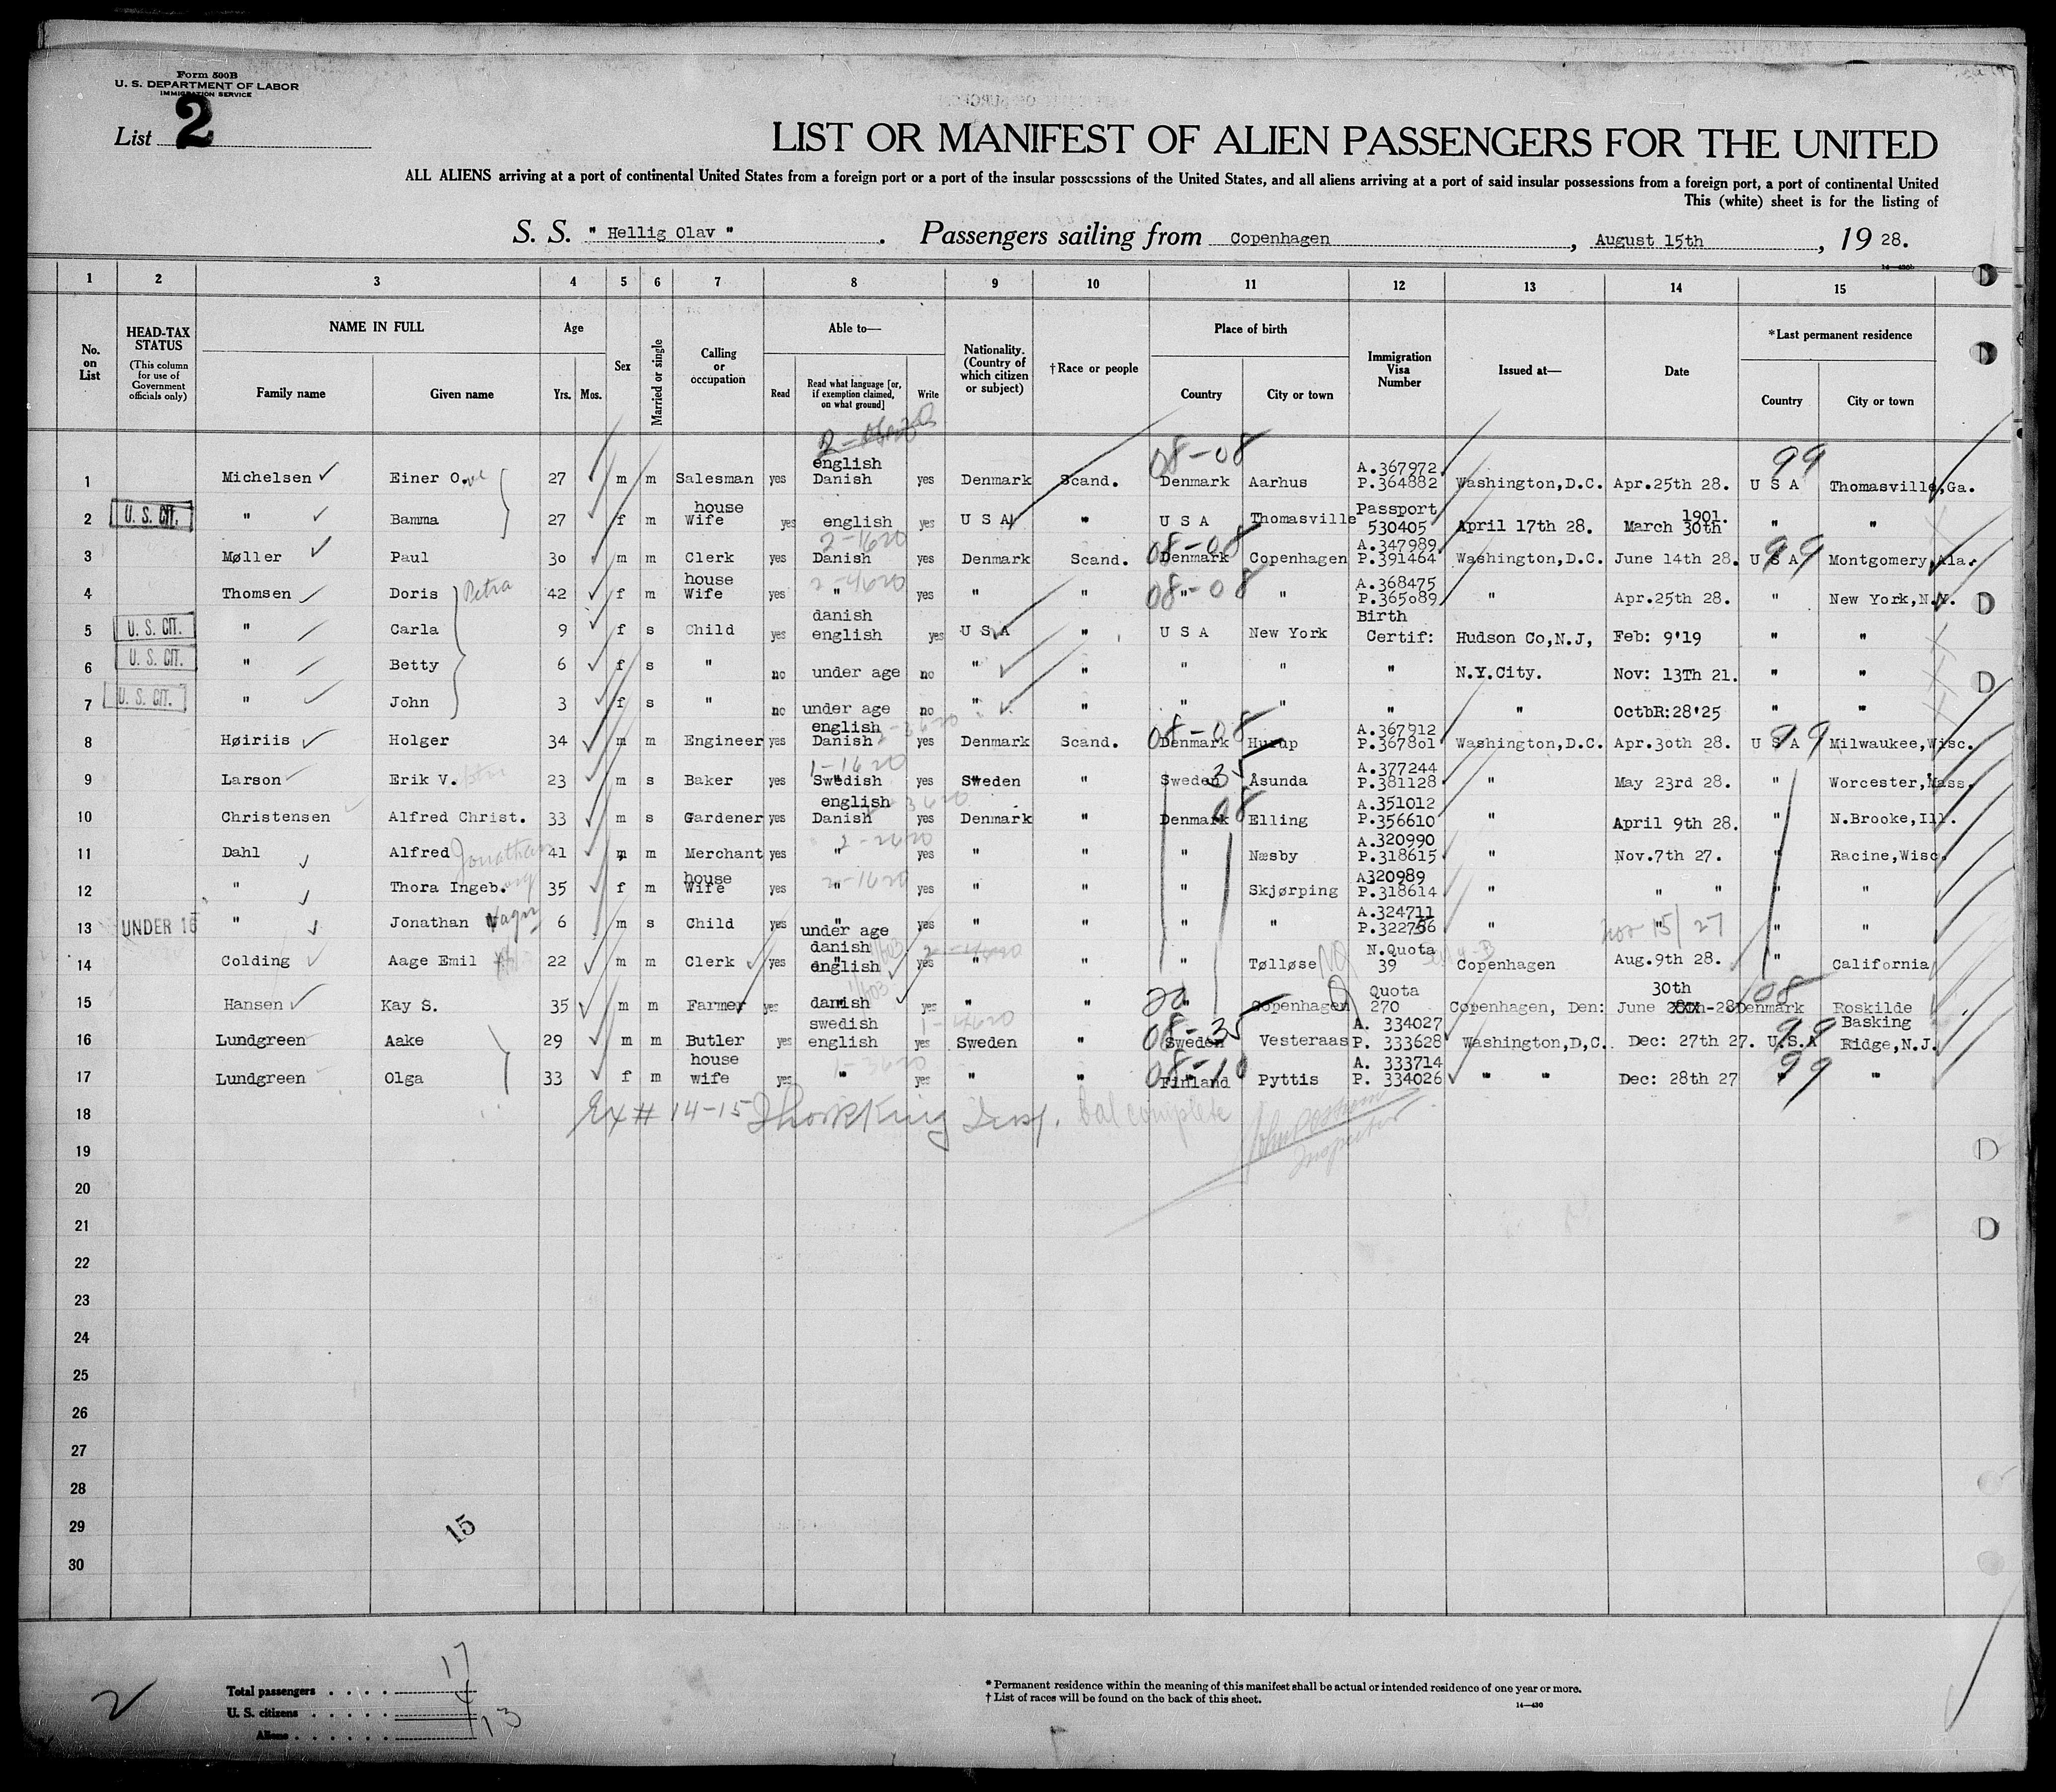 Form 500B
U. S. DEPARTMENT OF LABOR
IMMIGRATION SERVICE
List 2
LIST OR MANIFEST OF ALIEN PASSENGERS FOR THE UNITED
ALL ALIENS arriving at a port of continental United States from a foreign port or a port of the insular possessions of the United States, and all aliens arriving at a port of said insular possessions from a foreign port, a port of continental United
This (white) sheet is for the listing of
S. S. " Hellig Olav " . Passengers sailing from Copenhagen , August 15th , 19 28.
1 2 3 4 5 6 7 8 9 10 11 12 13 14 15
No. on List
HEAD-TAX STATUS (This column for use of Government officials only)
NAME IN FULL Family name Given name
Age Yrs. Mos.
Sex
Married or single
Calling or occupation
Able to— Read Read what language [or, if exemption claimed, on what ground] Write
Nationality. (Country of which citizen or subject)
†Race or people
Place of birth Country City or town
Immigration Visa Number
Issued at—
Date
*Last permanent residence Country City or town
1 Michelsen Einer O. 27 m m Salesman yes english Danish yes Denmark Scand. 08-08 Denmark Aarhus A.367972 P.364882 Washington,D.C. Apr.25th 28. 99 U S A Thomasville,Ga.
2 U. S. CIT. " Bamma 27 f m house Wife yes english yes U S A " U S A Thomasville Passport 530405 April 17th 28. March 30th 1901. " "
3 Møller Paul 30 m m Clerk yes 2-1620 Danish yes Denmark Scand. 08-08 Denmark Copenhagen A.347989 P.391464 Washington,D.C. June 14th 28. 99 U S A Montgomery,Ala.
4 Thomsen Doris Petra 42 f m house Wife yes 2-4620 " yes " " 08-08 " " A.368475 P.365089 " Apr.25th 28. " New York,N.Y.
5 U. S. CIT. " Carla 9 f s Child yes danish english yes U S A " U S A New York Birth Certif: Hudson Co,N.J, Feb: 9'19 " "
6 U. S. CIT. " Betty 6 f s " no under age no " " " " " N.Y.City. Nov: 13Th 21. " "
7 U. S. CIT. " John 3 f s " no under age no " " " " " " OctbR:28'25 " "
8 Høiriis Holger 34 m m Engineer yes english Danish yes Denmark Scand. 08-08 Denmark Hurup A.367912 P.367801 Washington,D.C. Apr.30th 28. 99 U S A Milwaukee,Wisc.
9 Larson Erik V. 23 m s Baker yes 1-1620 Swedish yes Sweden " Sweden 35 Åsunda A.377244 P.381128 " May 23rd 28. " Worcester,Mass.
10 Christensen Alfred Christ. 33 m s Gardener yes english Danish yes Denmark " Denmark 08 Elling A.351012 P.356610 " April 9th 28. " N.Brooke,Ill.
11 Dahl Alfred Jonathan 41 m m Merchant yes 2-2620 " yes " " " Næsby A.320990 P.318615 " Nov.7th 27. " Racine,Wisc.
12 " Thora Ingeb. 35 f m house Wife yes 2-1620 " yes " " " Skjørping A320989 P.318614 " " " " "
13 UNDER 16 " Jonathan 6 m s Child yes " under age yes " " " " A.324711 P.322756 " " Nov 15/27 " "
14 Colding Aage Emil 22 m m Clerk yes danish english yes " " " Tølløse N.Quota 39 Copenhagen Aug.9th 28. " California
15 Hansen Kay S. 35 m m Farmer yes danish yes " " " Copenhagen Quota 270 Copenhagen, Den: June 30th -28 08 Denmark Roskilde
16 Lundgreen Aake 29 m m Butler yes swedish english yes Sweden " 08-35 Sweden Vesteraas A. 334027 P. 333628 Washington,D,C. Dec: 27th 27. 99 U.S.A Basking Ridge,N.J.
17 Lundgreen Olga 33 f m house wife yes 1-3620 " yes " " 08-10 Finland Pyttis A. 333714 P. 334026 " " Dec: 28th 27 99 " "
18 Ex # 14-15 Insp. bal complete
Inspector
19
20
21
22
23
24
25
26
27
28
29
30
15
2
Total passengers . . . . 17
U. S. citizens . . . . . 4
Aliens . . . . . . 13
* Permanent residence within the meaning of this manifest shall be actual or intended residence of one year or more.
† List of races will be found on the back of this sheet.
14—430